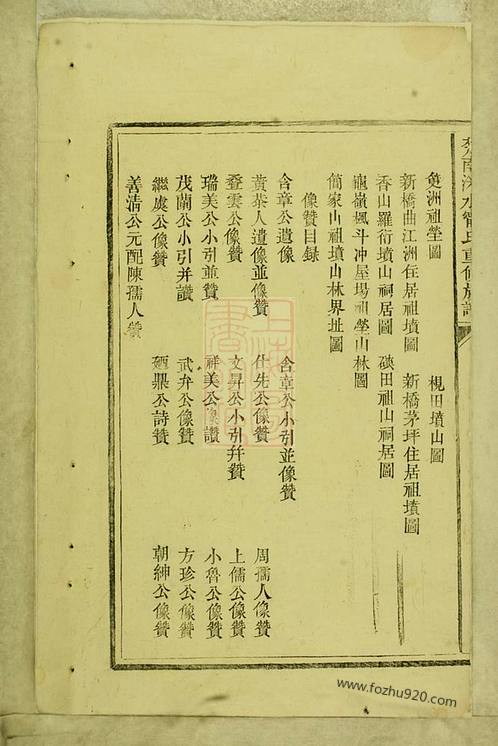 雙洲祖塋圖　梘田墳山圖
新橋曲江洲住居祖墳圖　新橋茅坪住居祖墳圖
香山羅衍墳山祠居圖　磺田祖山祠居圖
龜嶺楓斗冲屋場祖塋山林圖
簡家山祖墳山林界址圖
像贊目录
含章公遺像　含章公小引並像贊
黃恭人遺像並像贊　仕先公像贊　周孺人像贊
登雲公像贊　文昇公小引幷贊　上儒公像贊
瑞美公小引並贊　祥美公像讚　小魯公像贊
茂蘭公小引并讚　武弁公像贊　方珍公像贊
繼虞公像贊　廼鼎公詩贊　朝紳公像贊
善清公元配陳孺人贊
www.fozhu920.com